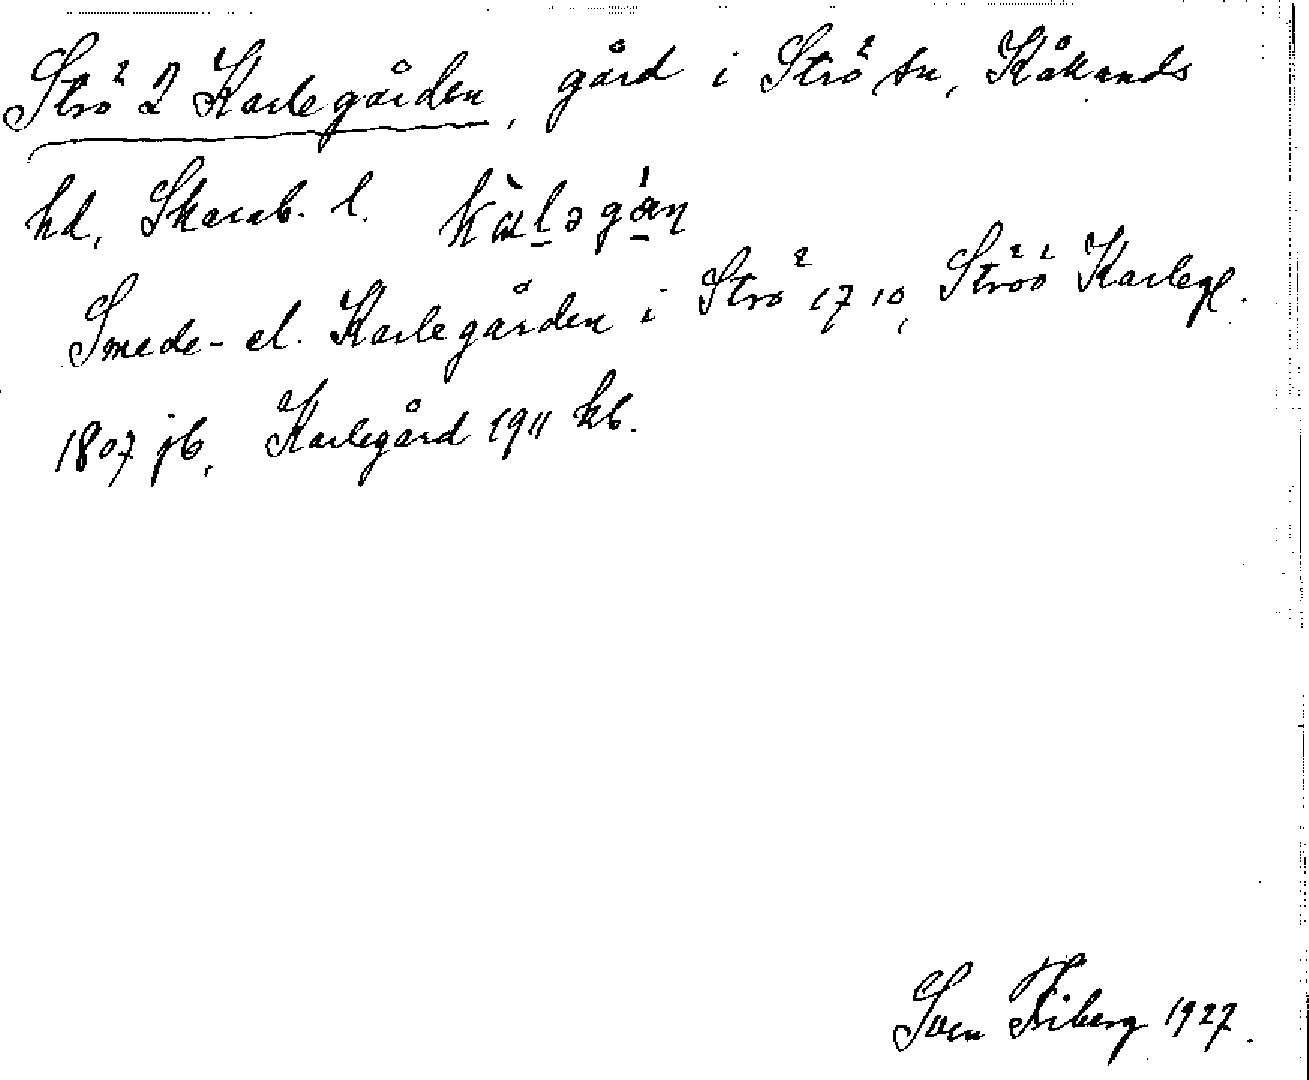 Strö 2 Karlegården, gård i Strö sn, Kåkands
hd, Skarab. l.
Smede- el. Karlegården i Strö 1710, Ströö Karlegl.
1807 jb, Karlegård 1911 kb.
Sven Friberg 1927.